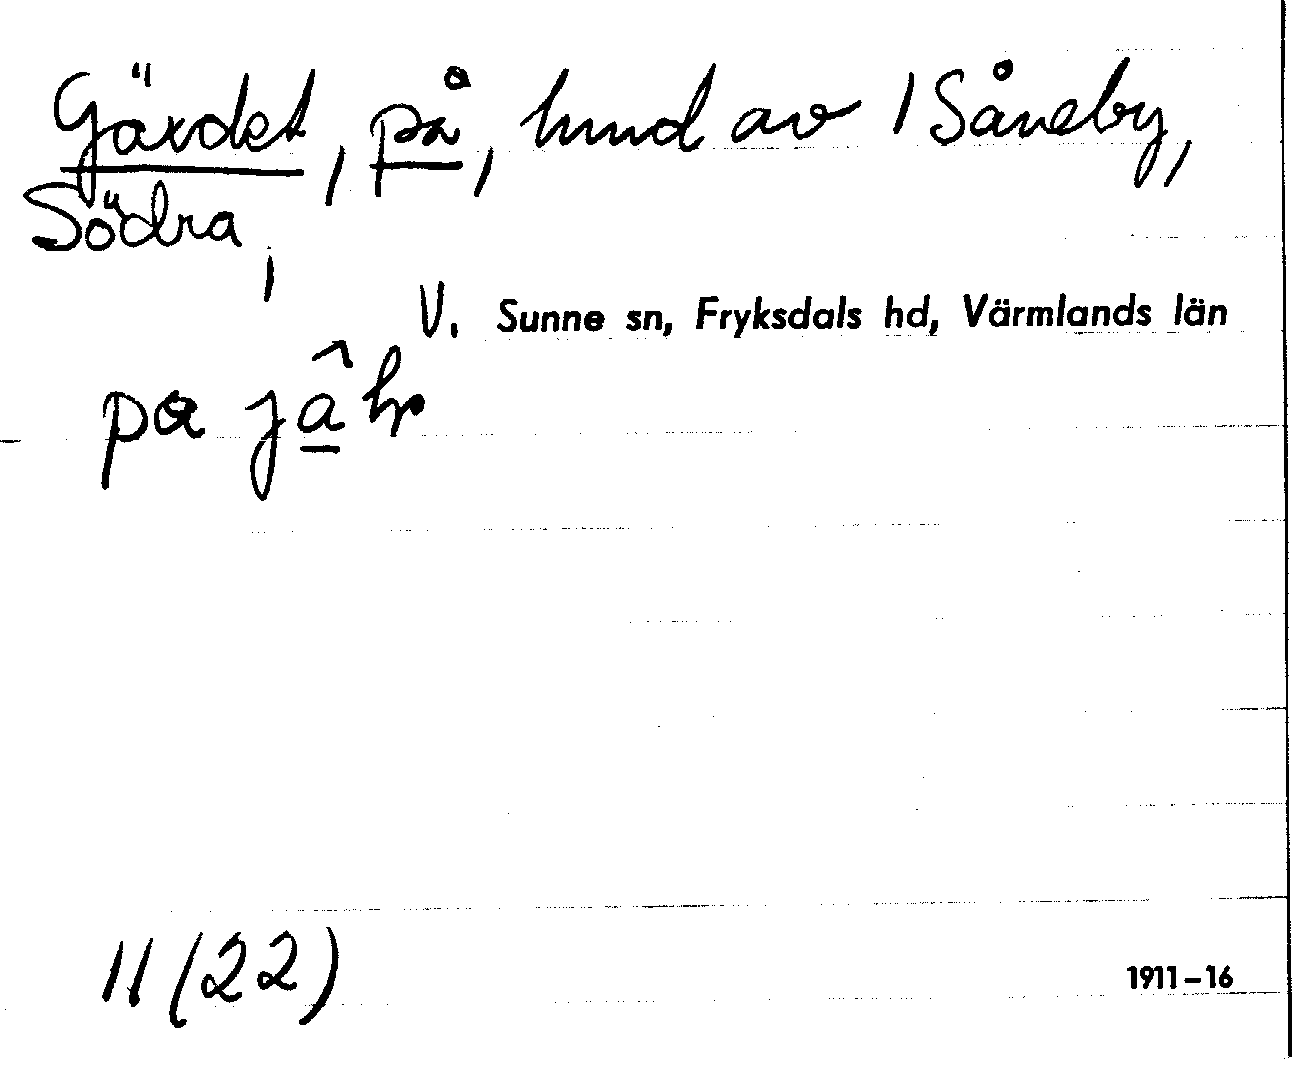 Gärdet, på, hmd av 1 Såneby,
Södra,
V. Sunne sn, Fryksdals hd, Värmlands län
pa
11 (22)
1911-16